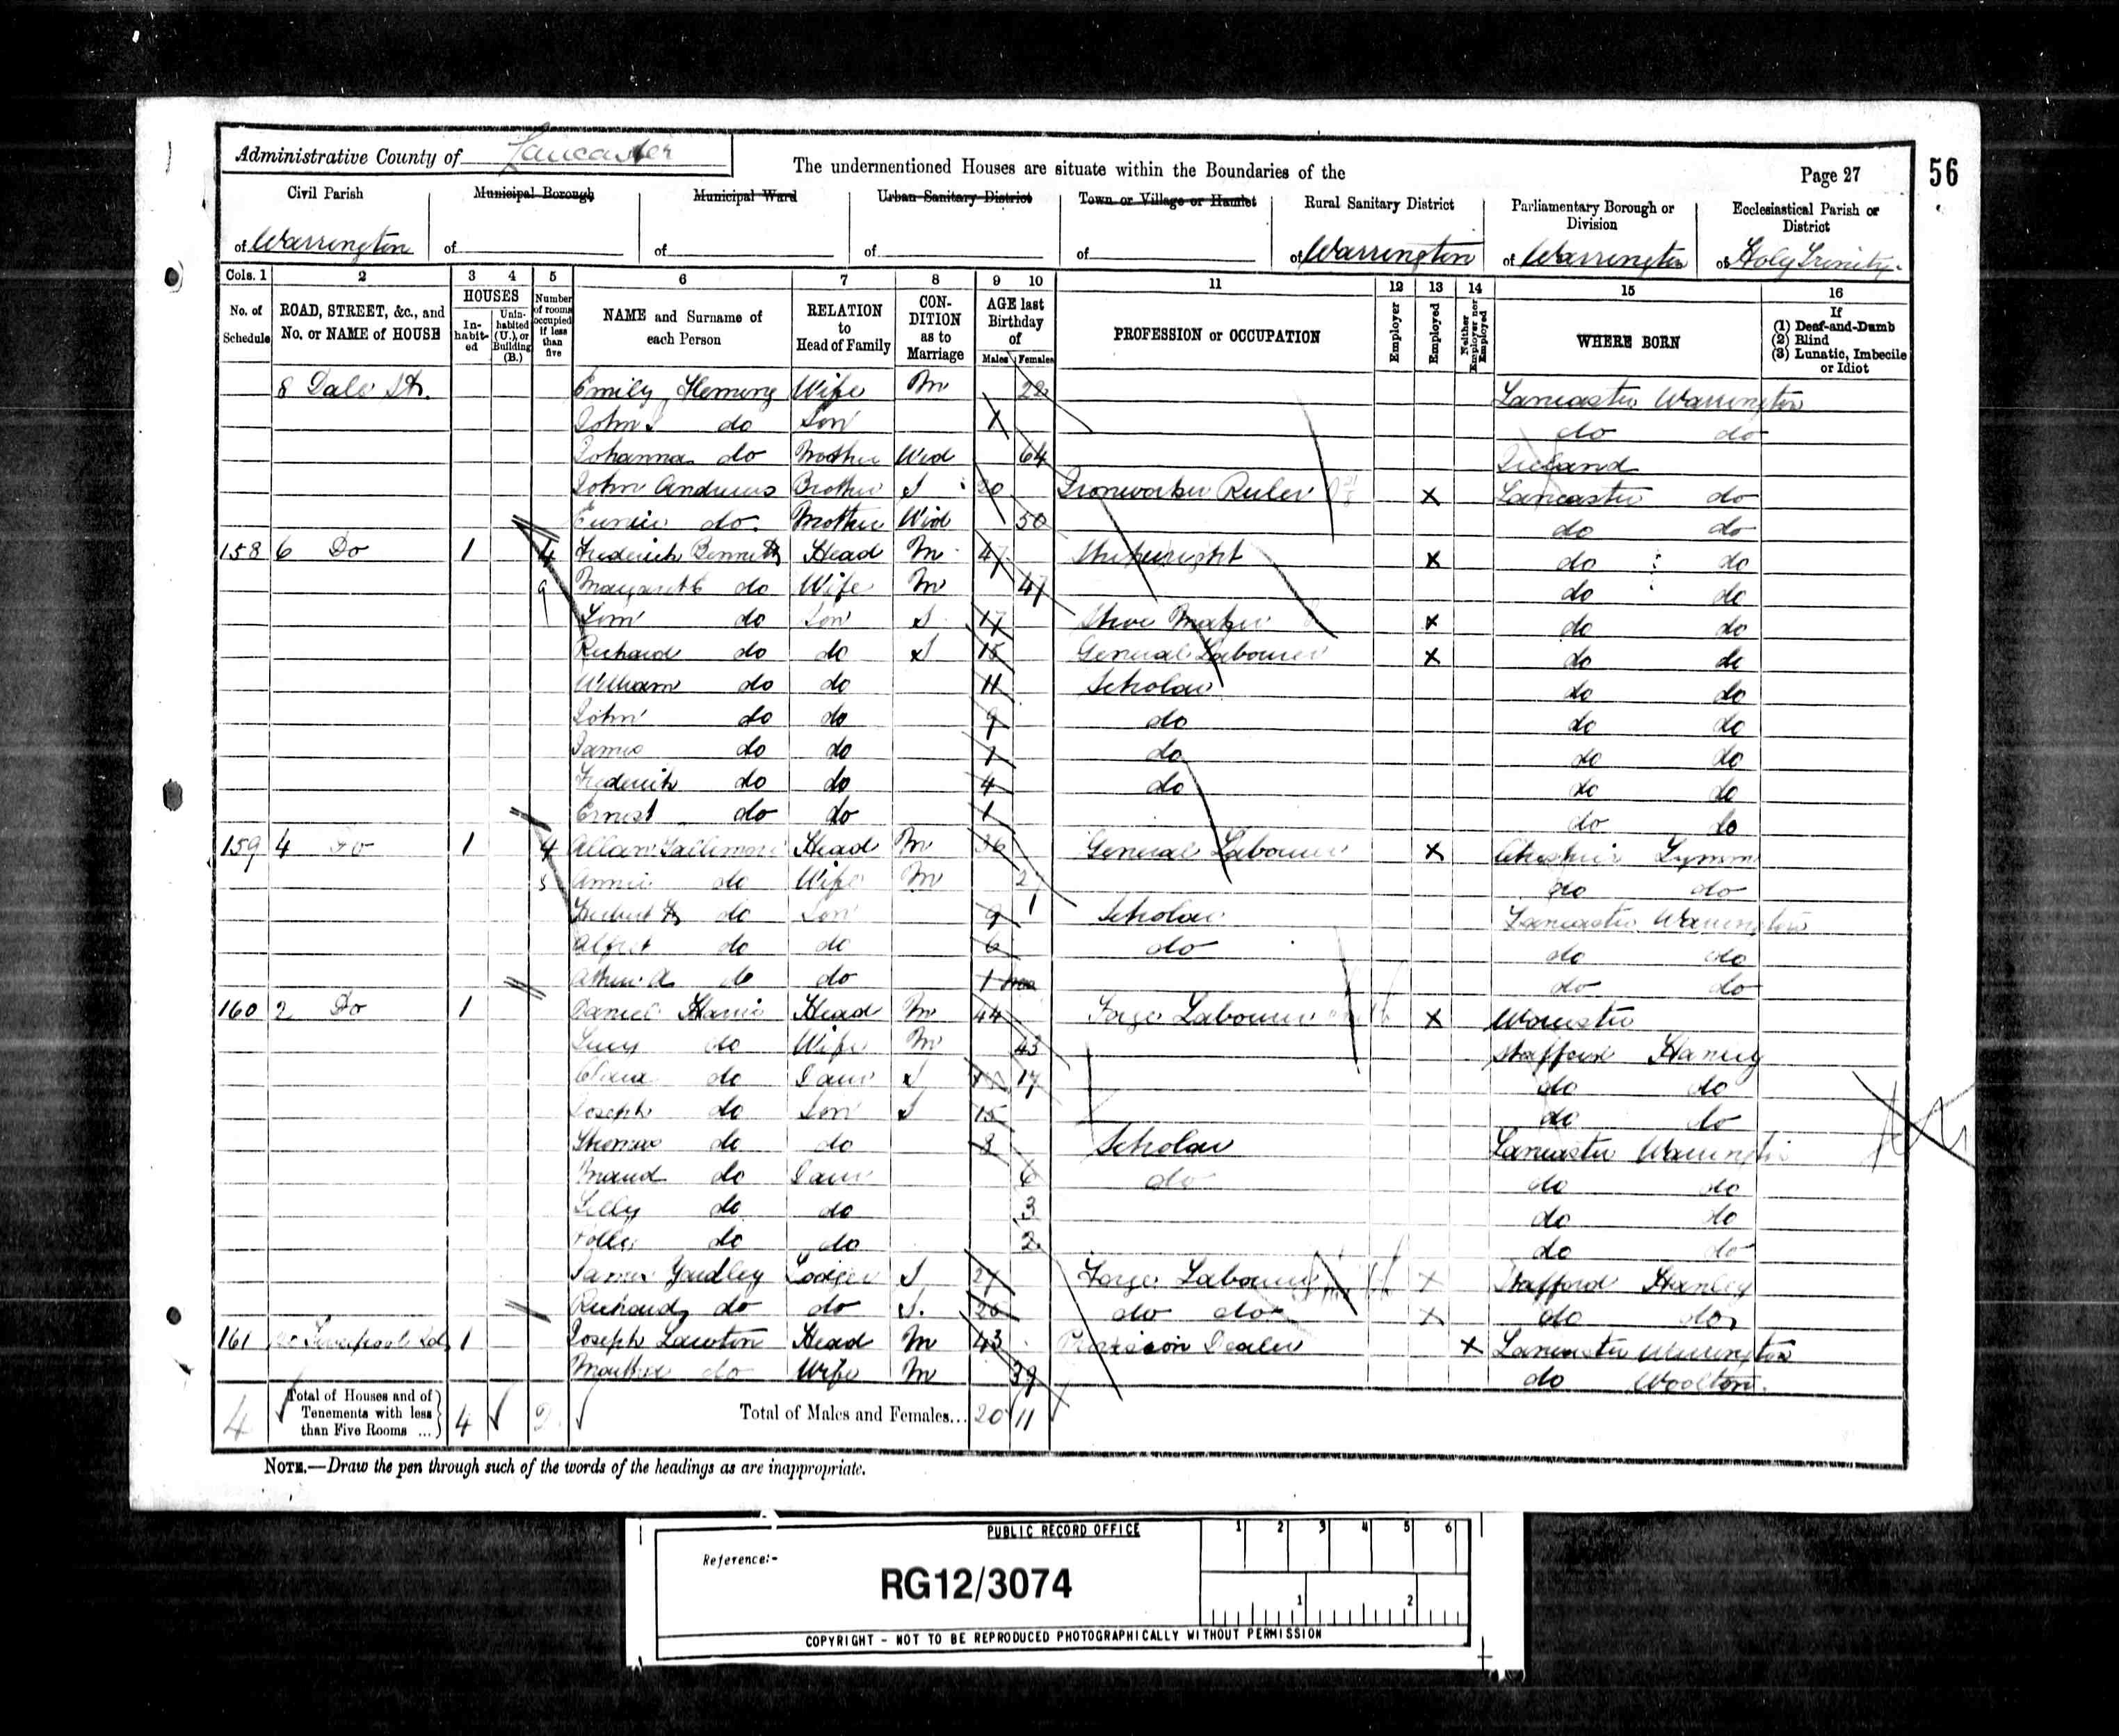 Administrative County of Lancaster
The undermentioned Houses are situate within the Boundaries of the
Page 27
56
Civil Parish of Warrington
Municipal Borough of
Municipal Ward of
Urban Sanitary District of
Town or Village or Hamlet of
Rural Sanitary District of Warrington
Parliamentary Borough or Division of Warrington
Ecclesiastical Parish or District of Holy Trinity
Cols. 1 2 3 4 5 6 7 8 9 10 11 12 13 14 15 16
No. of Schedule
ROAD, STREET, &c., and No. or NAME of HOUSE
HOUSES
In-habit-ed
Unin-habited (U.), or Building (B.)
Number of rooms occupied if less than five
NAME and Surname of each Person
RELATION to Head of Family
CON-DITION as to Marriage
AGE last Birthday of
Males Females
PROFESSION or OCCUPATION
Employer
Employed
Neither Employer nor Employed
WHERE BORN
If
(1) Deaf-and-Dumb
(2) Blind
(3) Lunatic, Imbecile or Idiot
8 Dale St. Emily Fleming Wife M 22 Lancaster Warrington
John do Son do do
Johanna do Mother Wid 64 Ireland
John Andrews Brother S 20 Ironworker X Lancaster do
Eunice do. Mother Wid 50 do do
158 6 Do 1 4 Frederick Bennett Head M 47 Shipwright X do do
9 Margaret do Wife M 47 do do
do Son S 17 Shoe Maker X do do
Richard do do S 15 General Labourer X do do
William do do 11 Scholar do do
John do do 9 do do do
James do do do do do
Frederick do do 4 do do do
Ernest do do 1 do do
159 4 Do 1 4 Allan Head M 36 General Labourer X Cheshire Lymm
5 Annie do Wife M do do
Herbert do Son 9 Scholar Lancaster Warrington
Alfred do do 6 do do do
do do 1 do do
160 2 Do 1 Daniel Harris Head M 44 Forge Labourer X Worcester
Lucy do Wife M 43 Stafford Hanley
Clara do Daur S 17 do do
Joseph do Son S 15 do do
Thomas do do 8 Scholar Lancaster Warrington
Maud do Daur 6 do do do
Lilly do do 3 do do
Polly do do 2 do do
James Yardley Lodger S 27 Forge Labourer X Stafford Hanley
Richard do do S. 26 do do X do do
161 Liverpool Rd 1 Joseph Lawton Head M 43 Provision Dealer X Lancaster Warrington
Martha do Wife M 39 do Woolton.
4 Total of Houses and of Tenements with less than Five Rooms ... 4 2 Total of Males and Females... 20 11
NOTE.—Draw the pen through such of the words of the headings as are inappropriate.
PUBLIC RECORD OFFICE
1 2 3 4 5 6
Reference:-
RG12/3074
1 2
COPYRIGHT - NOT TO BE REPRODUCED PHOTOGRAPHICALLY WITHOUT PERMISSION